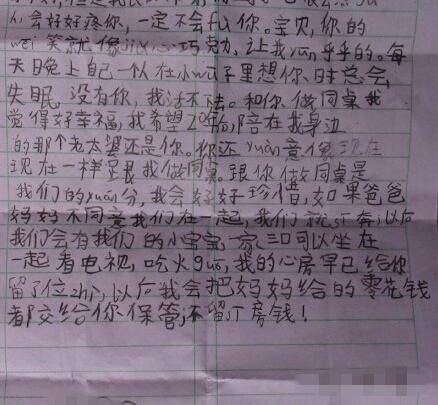 会好好疼你,一定不会fu你。宝贝,你的
wei笑就像jia心巧克力。让我yun乎乎的。每
天晚上自己一人在小wu子里想你时总会
失眠,没有你,我活不下去。和你做同桌我
觉得好幸福,我希望20年后,陪在我身边
的那个老太婆还是你。你还yuàn意像现在
现在一样是我做同桌。跟你做同桌是
我们的yuán分,我会好好珍惜,如果爸爸
妈妈不同意我们在一起,我们就私奔,以后
我们会有我们的小宝宝,一家三口可以坐在
一起看电视,吃火guō,我的心房早已给你
留了位zhì,以后我会把妈妈给的零花钱
都交给你保管,不留丁房钱!